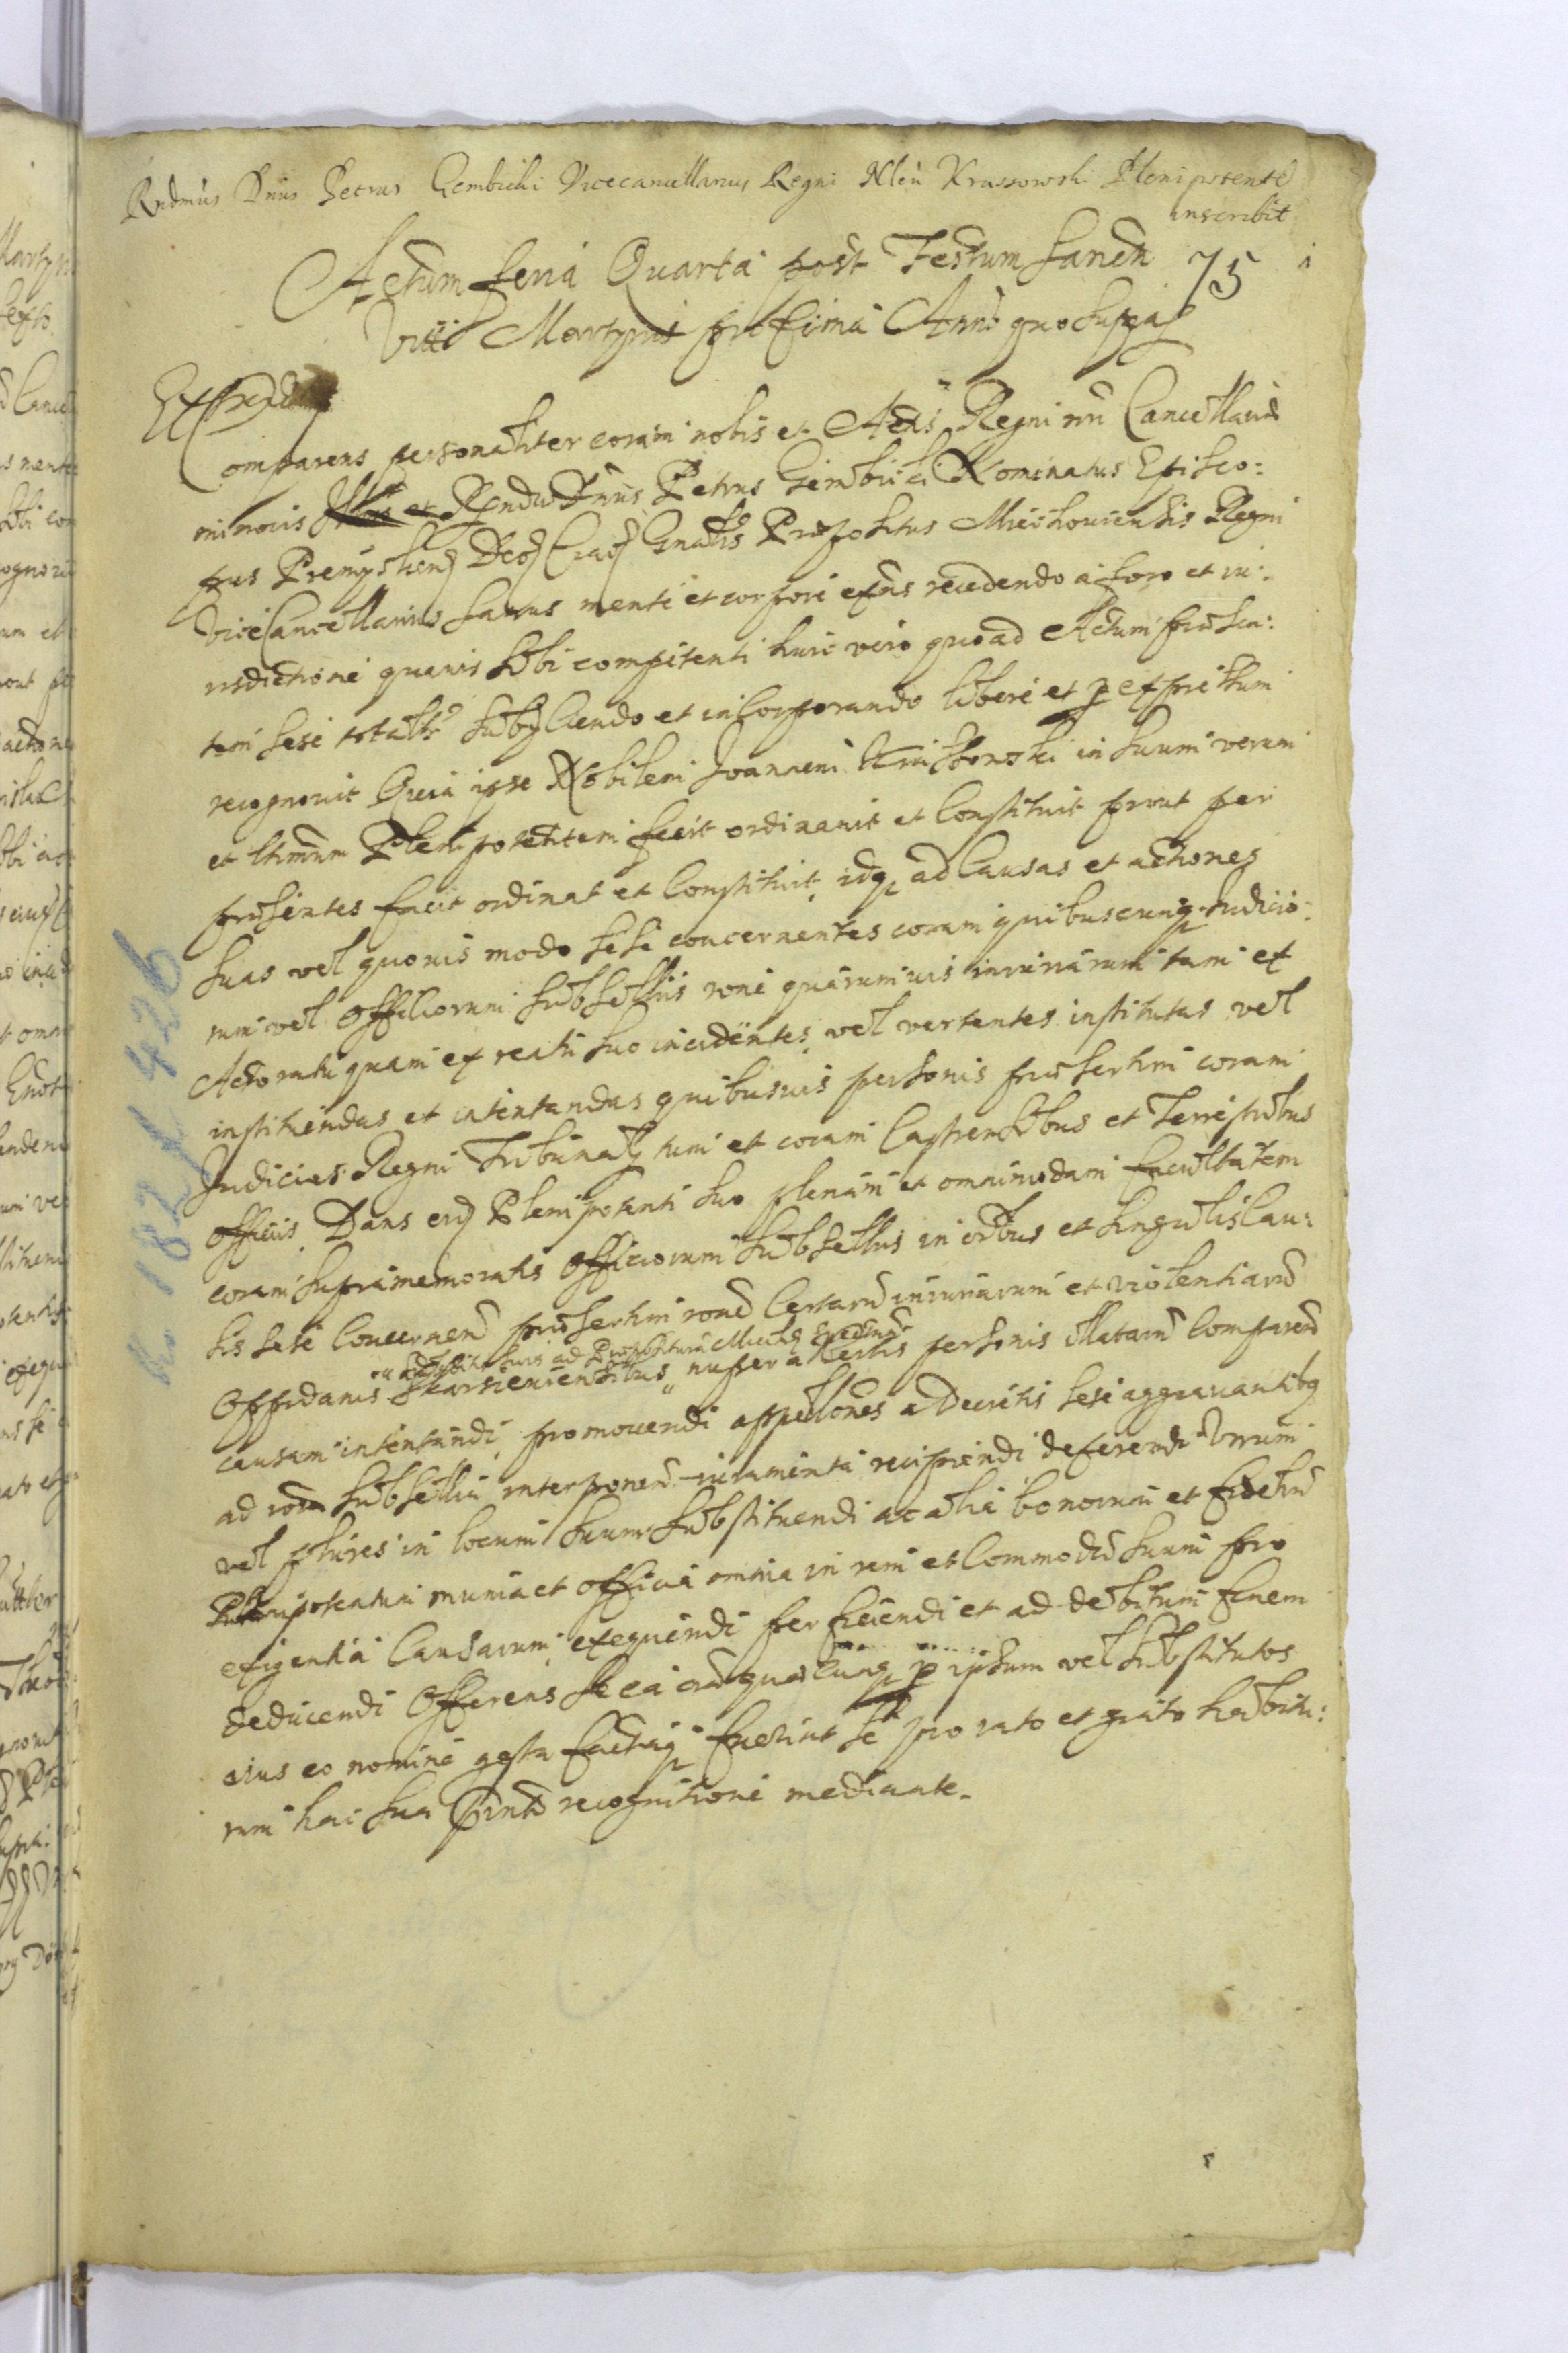 Rndmus Dnus Petrus Gembicki Vicecancellarius Regni Nlem Krassowski Plenipotente
inscribit
Actum feria Quarta post Festum Sancti 75
Viti Martyris proxima Anno quo supra
Comparens personaliter coram nobis et Actis Regni nri Cancellariae
minoris Rndus Dnus Petrus Gembicki Nominatus Episco:
pus Premyslien Deo Crac Gnalis Praepositus Miechouiensis Regni
ViceCancellarius sanus mente et corpore exns recedendo a foro et iu:
risdictione quavis sibi competenti huic vero quo ad Actum praesen:
tem sese totaltr subyciendo et incorporando libere et p expressum
recognovit Quia ipse Nobilem Joannem in suum verum
et ltimum Plenipotentem fecit ordinavit et Constituit prout per
praesentes facit ordinat et Constituit, idq ad Causas et actiones
suas vel quovis modo sese concernentes coram quibuscunq Judicio:
rum vel Officiorum subsellijs rone quarumvis iniuriarum tam ex
Actoratu quam ex reatu suo incidentes, vel vertentes institutas vel
instituendas et intentandas quibusvis personis praesertim coram
Judicijs Regni Tribunal tum et coram Castrensibus et Terrestribus
officijs Dans eid Plenipotenti suo plenam et omnimodam facultatem
coram supramemoratis Officiorum subsellijs in oibus et singulis Cau:
sis sese Concernen praesertim rone Certaru iniuriarum et violentiaru
ad Praeposituram Miech
Oppidanis Skarszeuiensibus nuper a Certis personis illataru Comparen
causam intentandi, promouendi appellones a Decretis sese aggravantibq
ad subsellia interponen iuramenta recipiendi deferendi Vnum
vel plures in locum suum substituendi ac alia bonorum et fideliu
Plenipotentum munia et officia omnia in rem et Commodu suum pro
exigentia Causarum, exequendi perficiendi et ad debitum finem
deducendi Offerens se ea oia quaecunq p ipsum vel substitutos
eius eo nomine gesta factaq fuerint se pro rato et grato habitu:
rum hac sua pnti recognitione mediante.